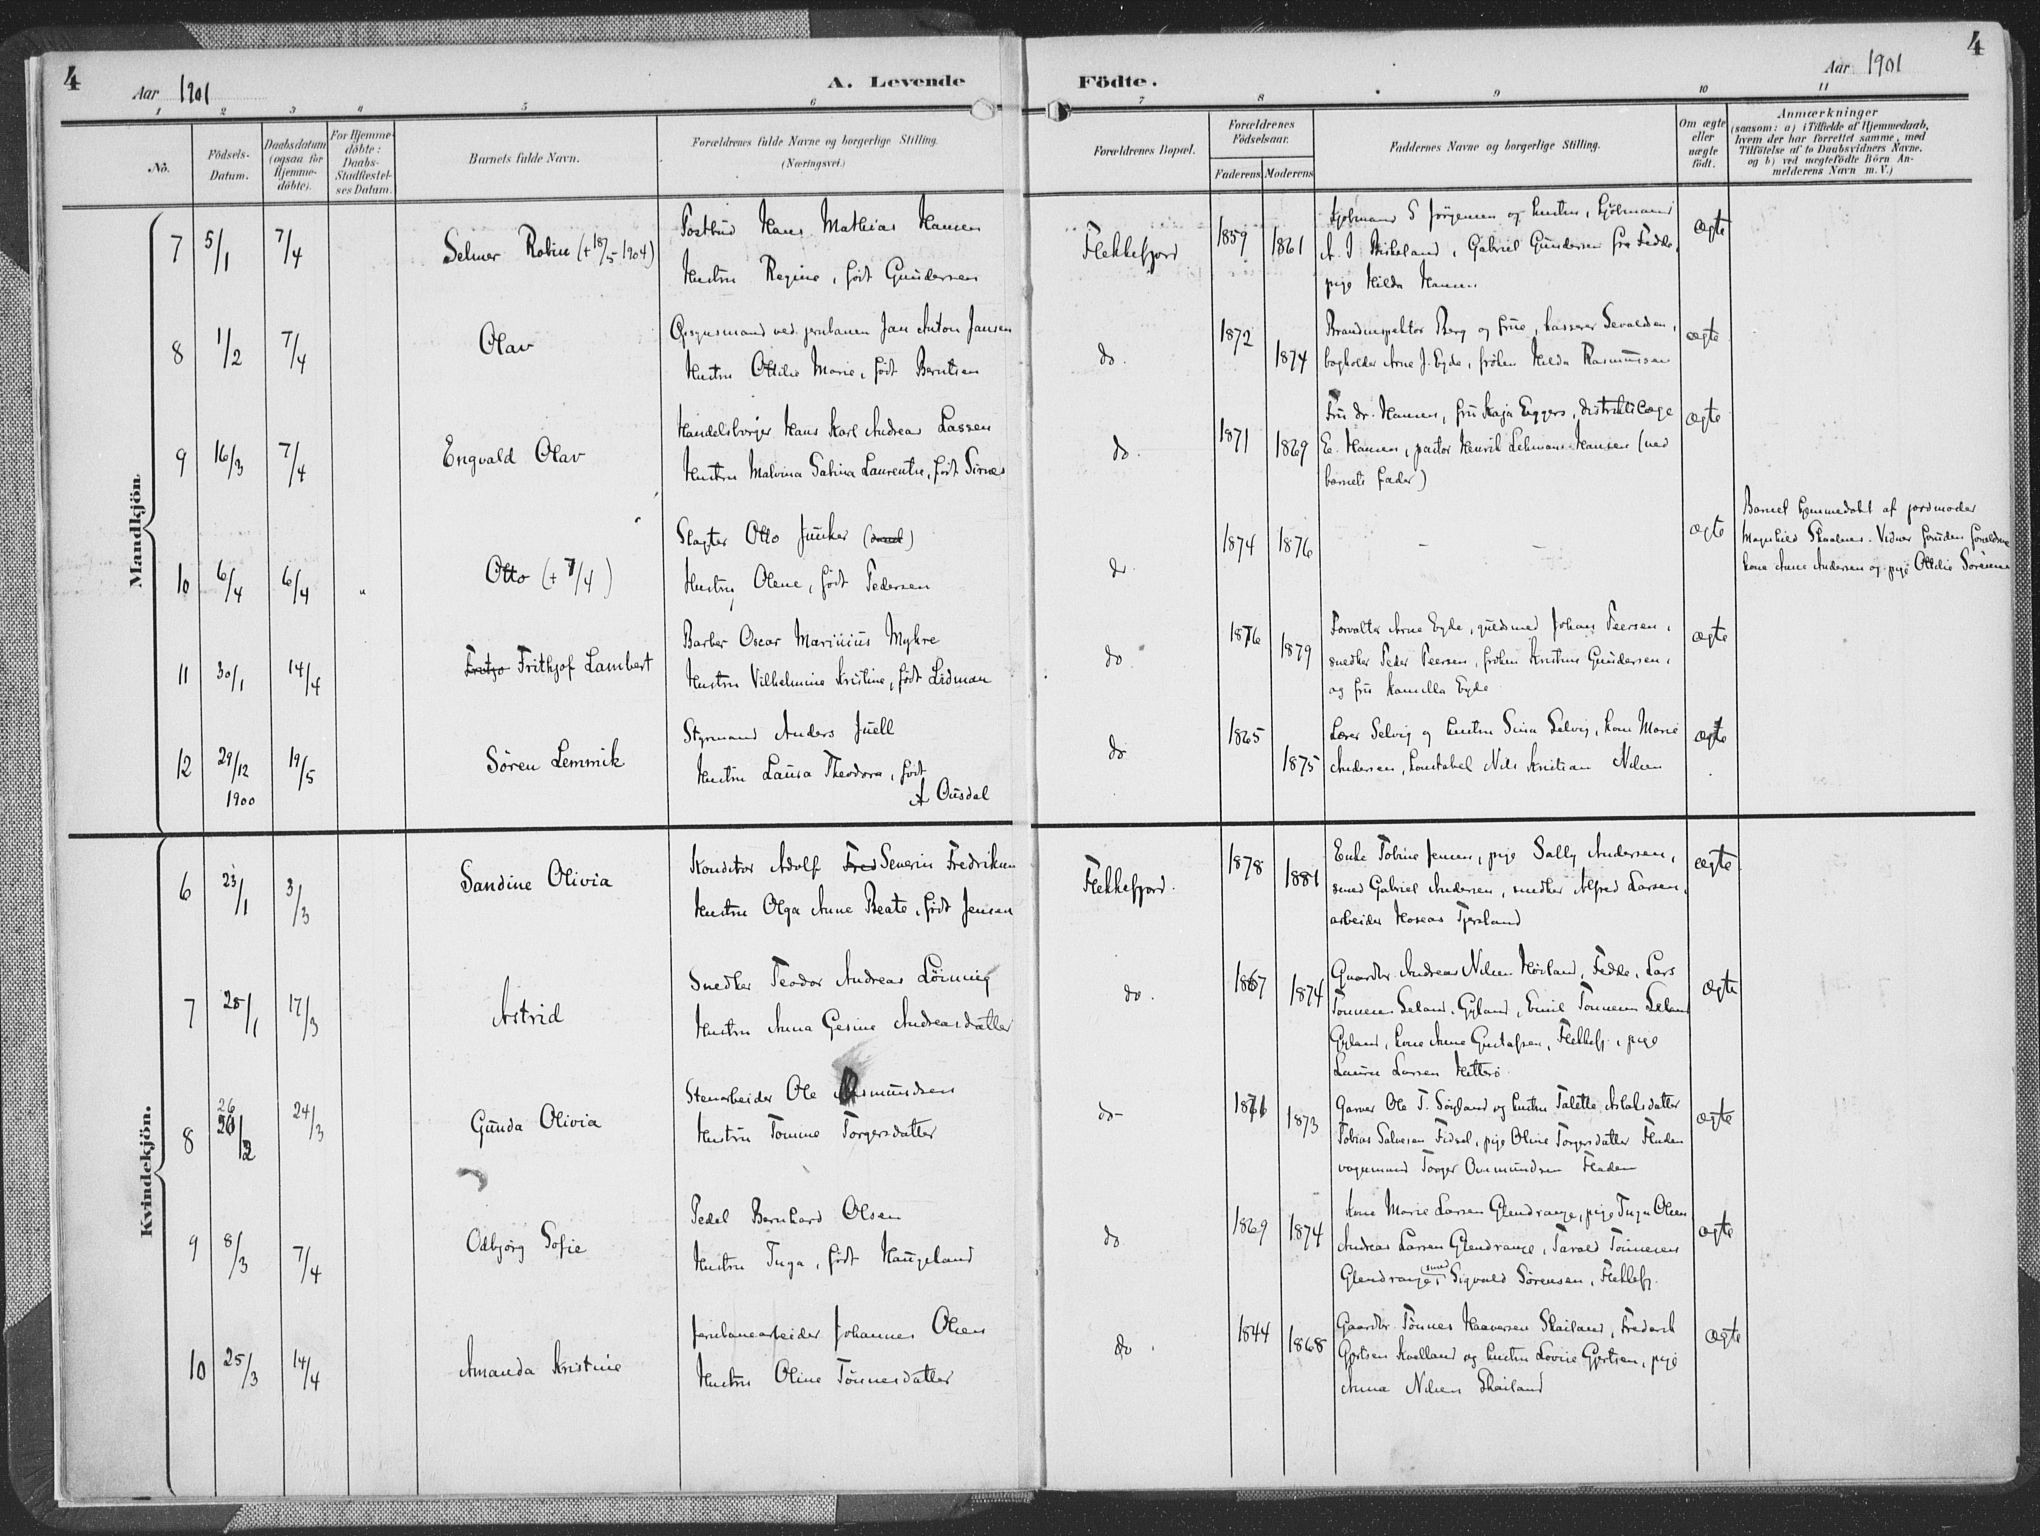 4
Aar 1901
A. Levende
Födte.
Aar 1901
4
1 2 3 4 5 6 7 8 9 10 11
No.
Födsels-
Datum.
Daabsdatum
(ogsaa for
Hjemme-
döbte).
For Hjemme-
döbte:
Daabs-
Stadfestel-
ses Datum.
Barnets fulde Navn.
Forældrenes fulde Navne og borgerlige Stilling.
(Næringsvei.)
Forældrenes Bopæl.
Forældrenes
Födselsaar.
Faderens Moderens
Faddernes Navne og borgerlige Stilling.
Om ægte
eller
uægte
födt.
Anmærkninger
(saasom: a) i Tilfælde af Hjemmedaab,
hvem der har forrettet samme, med
Tilföielse af to Daabsvidners Navne,
og b) ved uægtefödte Börn An-
melderens Navn m. V.)
Mandkjön.
7 5/1 7/4 Selmer Robin (+ 18/5 1904)
Postbud Hans Mathias Hansen
Hustru Regine, født Gundersen
Flekkefjord 1859 1861
S Jørgensen og hustru,
A. J. , Gabriel Gundersen fra Fedde,
pige Hilda Hansen
ægte
8 1/2 7/4 Olav
Opsynsmand ved jernbanen Jan Anton Jansen
Hustru Ottilie Marie, født Berntsen
do. 1872 1874
Brandinspektør Berg og frue, kasserer Sevaldsen,
bogholder Arne J. Eyde, frøken Hilda Rasmussen
ægte
9 16/3 7/4 Engvald Olav
Handelsborger Hans Karl Andreas Lassen
Hustru Malvina Sabina Laurentse, født Sirnes
do. 1871 1869
Fru dr. Hansen, fru Kaja Eggers, distriktslæge
E. Hansen, pastor Henrik Lehmann Hansen (ved
barnets fader)
ægte
10 6/4 6/4 " Otto (+ 7/4)
Slagter Otto Junker
Hustru Olene, født Pedersen
do. 1874 1876 – –
ægte
Barnet hjemmedøbt af jordmoder
Magnhild . Vidner foruden forældrene
kone Anne Andersen og pige Ottilie Sørensen
11 30/1 14/4 Frithjof Lambert
Barber Oscar Marinius Myhre
Hustru Vilhelmine Kristine, født Lidman
do. 1876 1879
Forvalter Arne Eyde, guldsmed Johan Peersen,
snedker Peder Peersen, frøken Kristine Gundersen,
og fru Kamilla Eyde
ægte
12 29/12 1900 19/5 Søren Lemmik
Styrmand Anders Juell
Hustru Laura Theodora, født
A Ousdal
do 1865 1875
Lærer Selvig og hustru Sina Selvig, kone Marie
Andersen, konstabel Nils Kristian Nilsen
ægte
Kvindekjön.
6 23/1 3/3 Sandine Olivia
Konditor Adolf Fred Severin Fredriksen
Hustru Olga Anne Beate, født Jensen
Flekkefjord. 1878 1881
Enke Tobine Jensen, pige Sally Andersen,
smed Gabriel Andersen, snedker Alfred Larsen,
arbeider Hoseas Tjersland
ægte
7 28/1 17/3 Astrid
Snedker Teodor Andreas Löining
Hustru Anna Gesine Andreasdatter
do. 1867 1874
Gaardbr. Andreas Nilsen Høiland, Fedde, Lars
Tønnesen Seland, Gyland, Emil Tønnesen Seland
Gyland, kone Anne Gustafsen, Flekkefj., pige
Laura Larsen Hitterø
ægte
8 26 26/2 24/3 Gunda Olivia
Stenarbeider Ole Osmundsen
Hustru Tomine Torgersdatter
do- 1871 1873
Garver Ole T. Søyland og hustru Talette Aslaksdatter
Tobias Salvesen Fidsel, pige Oline Torgersdatter Fladen
vognmand Torger Osmundsen Fladen
ægte
9 8/3 7/4 Odbjørg Sofie
Pedel Bernhard Olsen
Hustru Inga, født Haugeland
do 1869 1874
Kone Marie Larsen Glendrange, pige Inga Olsen
Andreas Larsen Glendrange, Tarald Tønnesen
Glendrange, smed Sigvald Sørensen, Flekkefj.
ægte
10 25/3 14/4 Amanda Kristine
Jernbanearbeider Johannes Olsen
Hustru Oline Tönnesdatter
do. 1844 1868
Gaardbr. Tønnes Haaversen Skailand, Frederik
Gjertsen Kvelland og hustru Lovise Gjertsen, pige
Anna Nilsen Skailand
ægte